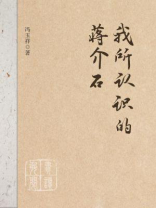 冯玉祥◎著
我所认识的
蒋介石